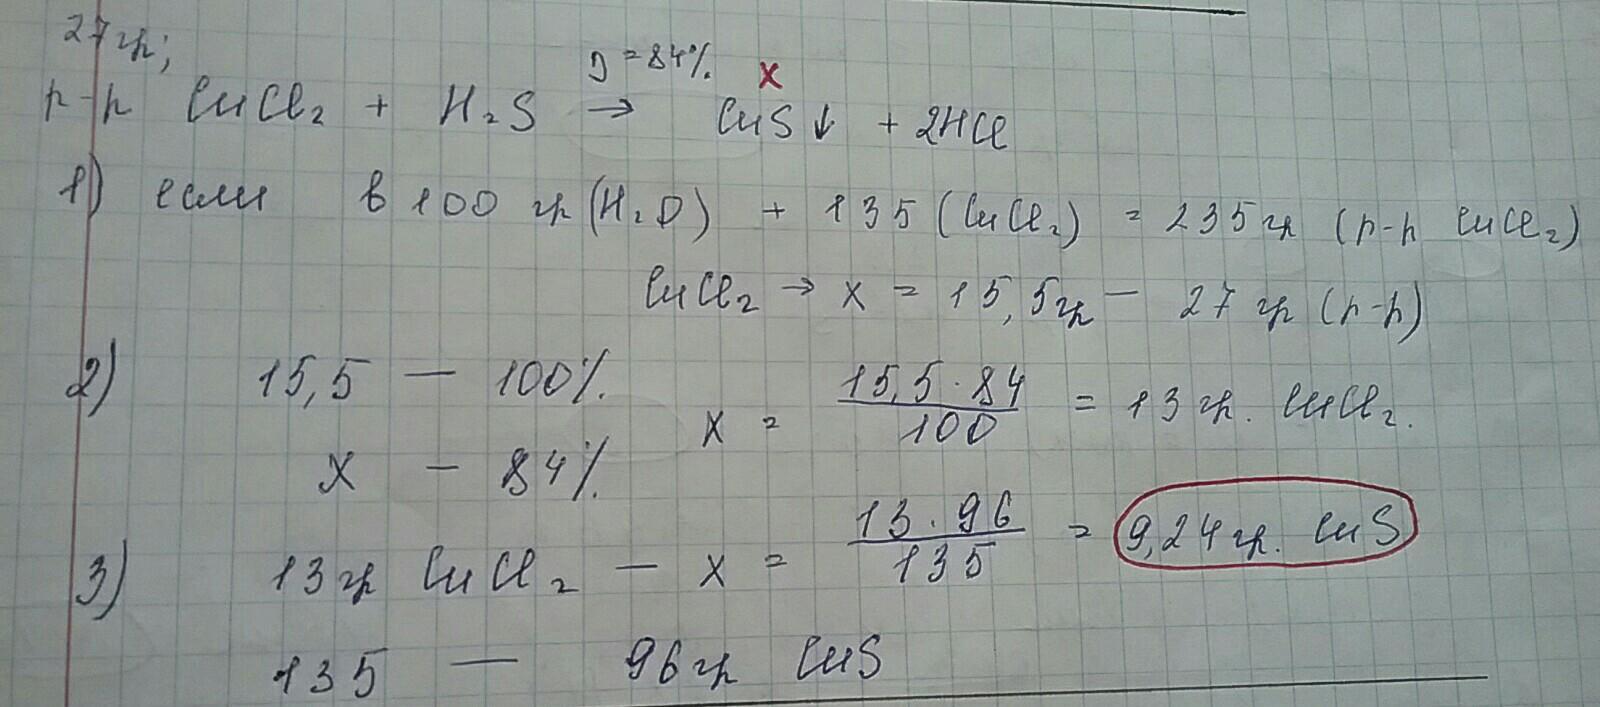 27 гр;
р-р CuCl₂ + H₂S → CuS↓ + 2HCl
η = 84% x
1) если в 100 гр (H₂O) + 135 (CuCl₂) = 235 гр (р-р CuCl₂)
CuCl₂ → x = 15,5 гр — 27 гр (р-р)
2) 15,5 — 100% x = 15,5 · 84 / 100 = 13 гр. CuCl₂.
x — 84%
3) 13 гр CuCl₂ — x = 13 · 96 / 135 = 9,24 гр. CuS
135 — 96 гр CuS